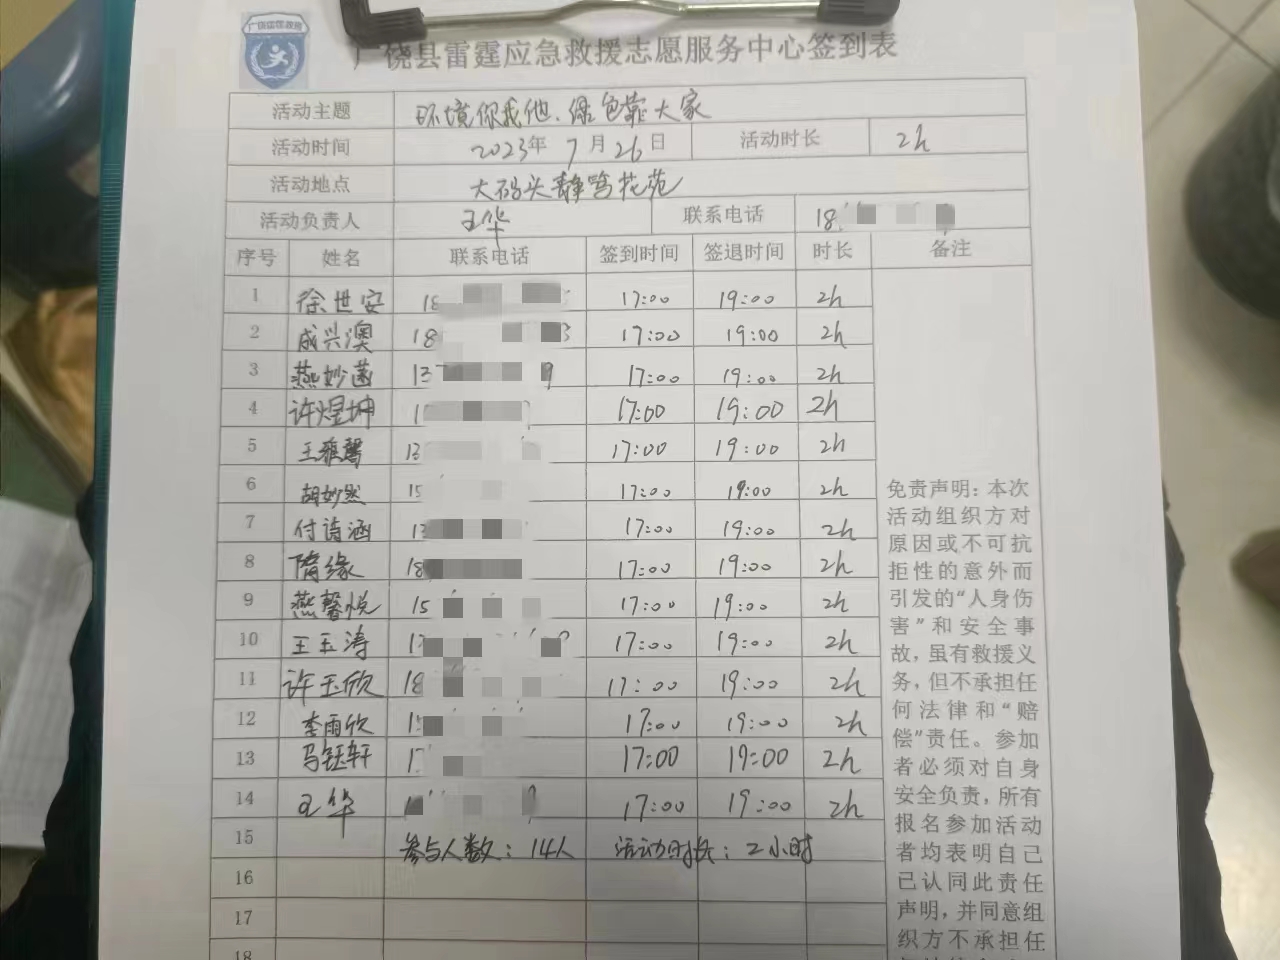 广饶县雷霆应急救援志愿服务中心签到表
活动主题 环境你我他.绿色靠大家
活动时间 2023年7月26日 活动时长 2h
活动地点 大码头静雯花苑
活动负责人 王华 联系电话 18
序号 姓名 联系电话 签到时间 签退时间 时长 备注
1 徐世安 18 17:00 19:00 2h
2 成兴澳 18 3 17:00 19:00 2h
3 燕妙菡 13 9 17:00 19:00 2h
4 许煜坤 1 17:00 19:00 2h
5 王雅馨 13 17:00 19:00 2h
6 胡妙然 15 17:00 19:00 2h
7 付诗涵 13 17:00 19:00 2h
8 隋缘 18 17:00 19:00 2h
9 燕馨悦 15 17:00 19:00 2h
10 王玉涛 1 17:00 19:00 2h
11 许玉欣 18 17:00 19:00 2h
12 李雨欣 1 17:00 19:00 2h
13 马钰轩 1 17:00 19:00 2h
14 王华 1 17:00 19:00 2h
15 参与人数：14人 活动时长：2小时
16
17
18
免责声明：本次
活动组织方对
原因或不可抗
拒性的意外而
引发的“人身伤
害”和安全事
故，虽有救援义
务，但不承担任
何法律和“赔
偿”责任。参加
者必须对自身
安全负责，所有
报名参加活动
者均表明自己
已认同此责任
声明，并同意组
织方不承担任